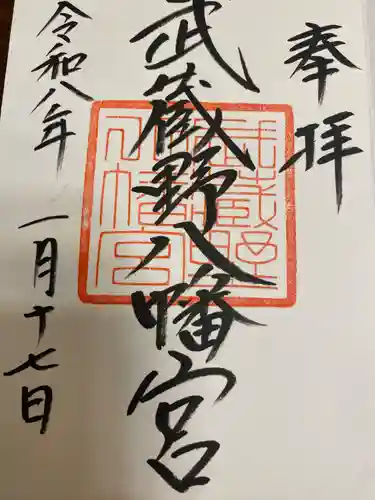 奉拝
武蔵野八幡宮
武蔵野八幡宮
令和八年 一月十七日